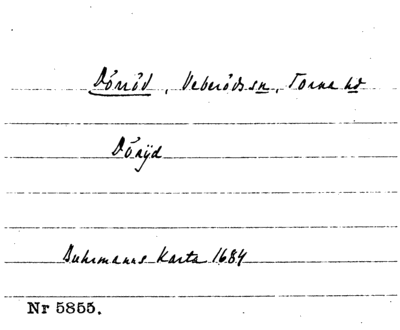 Dörröd, Veberöds sn, Torna hd
Dörÿd
Buhrmanns Karta 1684
Nr 5855.